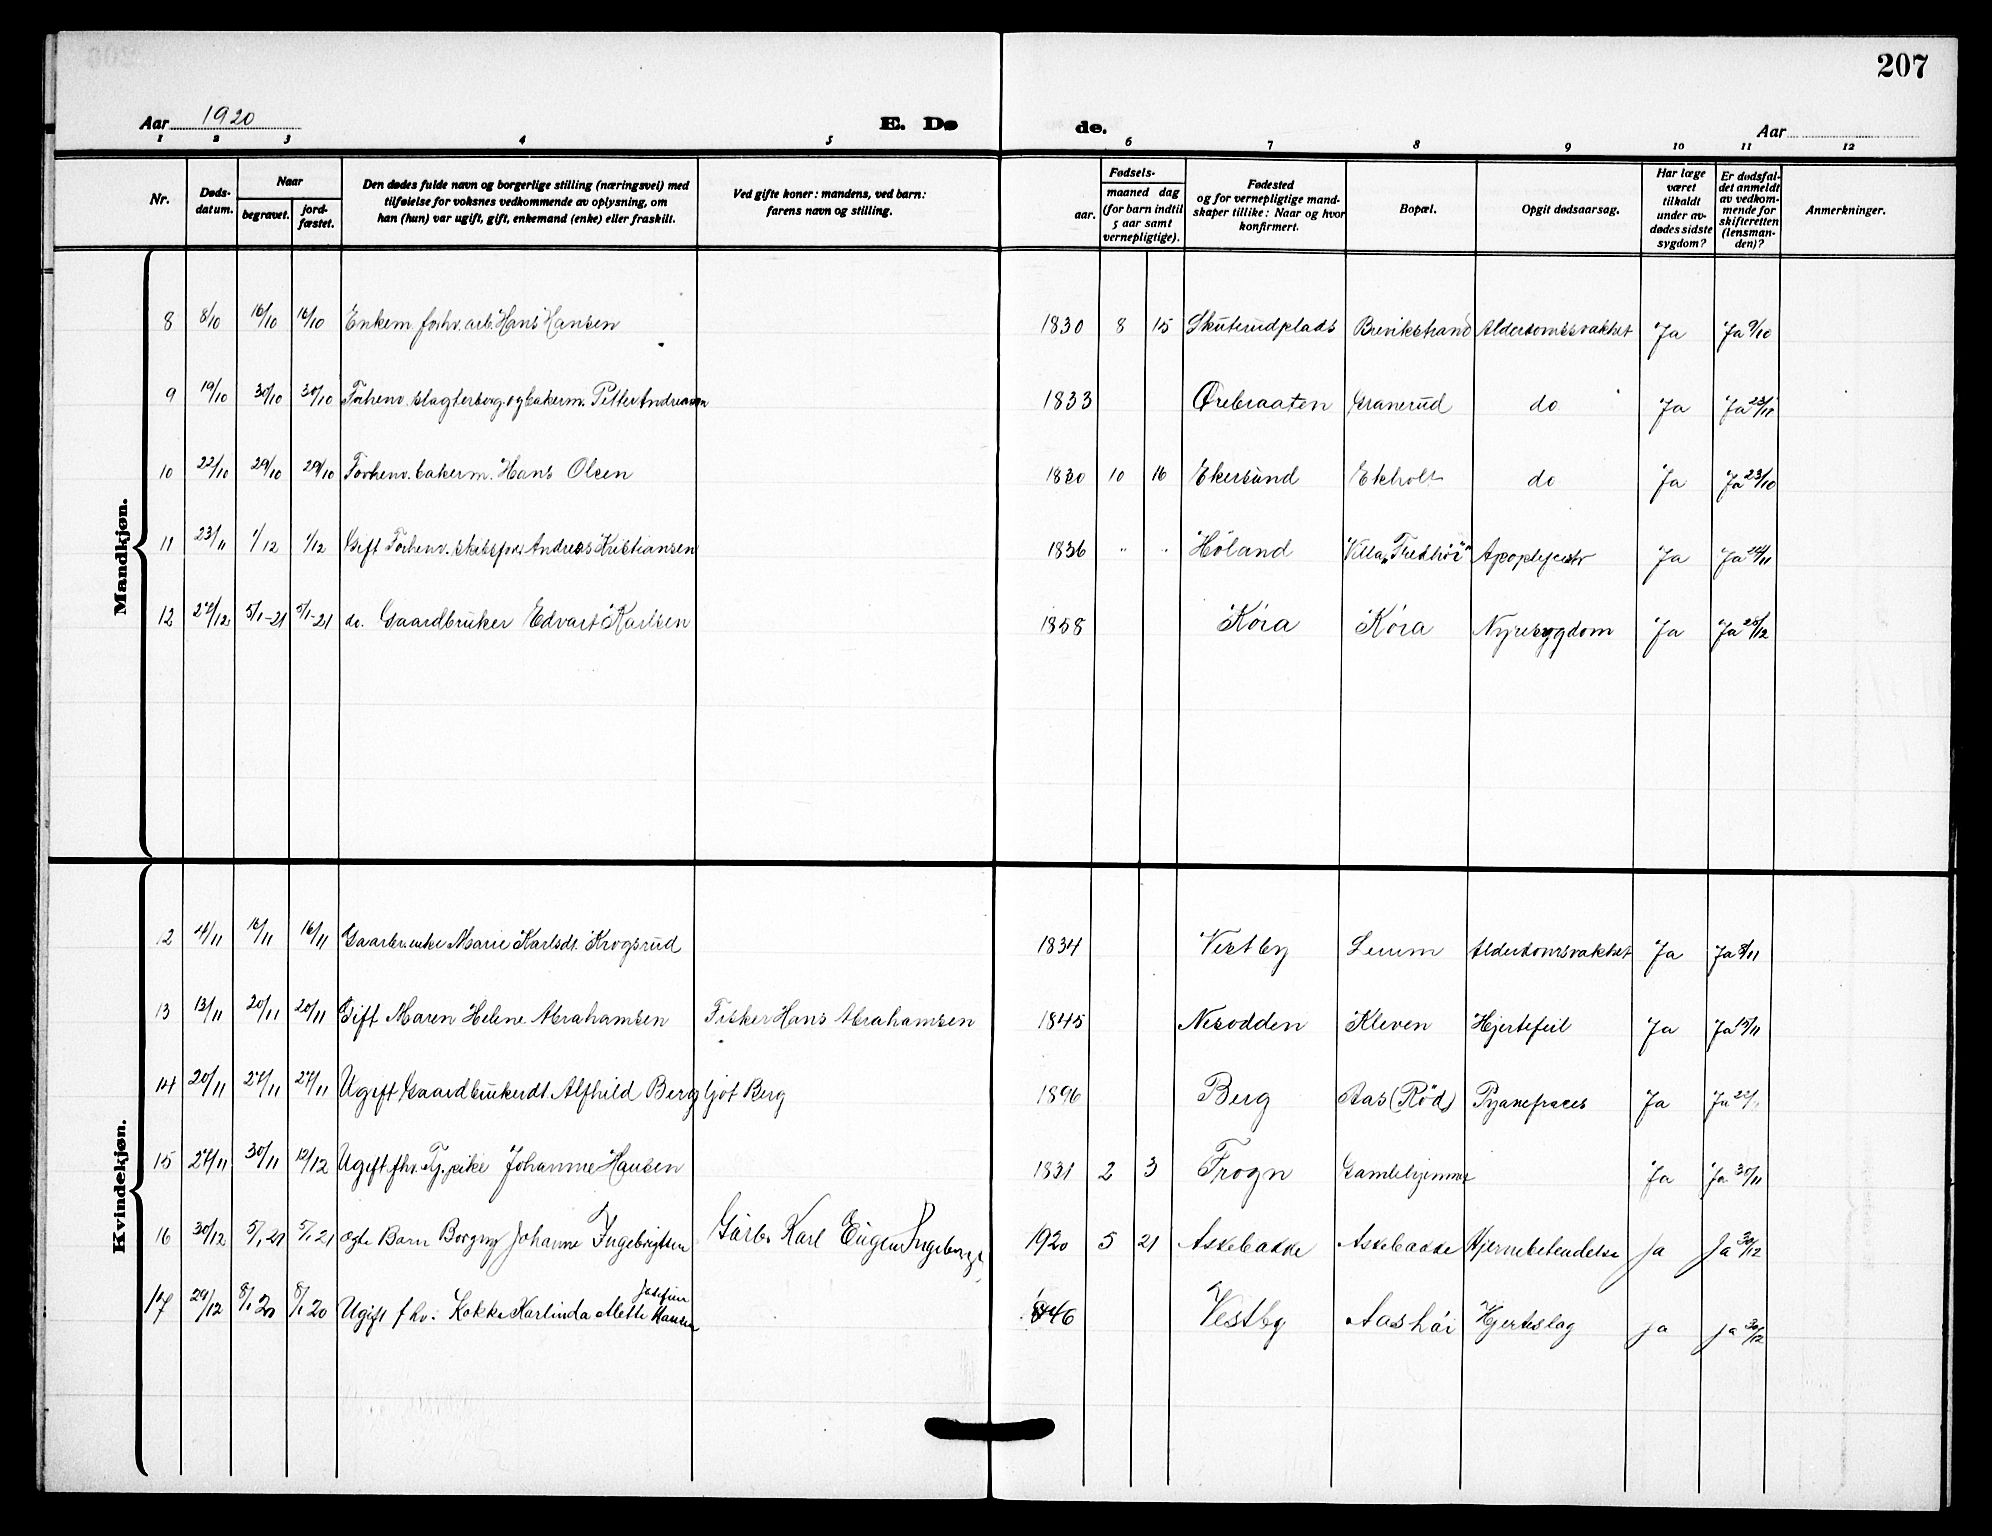 207
Aar 1920
E. Dø
de.
Aar
1 2 3 4 5 6 7 8 9 10 11 12
Nr.
Døds-
datum.
Naar
begravet.
jord-
fæstet.
Den dødes fulde navn og borgerlige stilling (næringsvei) med
tilføielse for voksnes vedkommende av oplysning, om
han (hun) var ugift, gift, enkemand (enke) eller fraskilt.
Ved gifte koner: mandens, ved barn:
farens navn og stilling.
Fødsels-
aar.
maaned dag
(for barn indtil
5 aar samt
vernepligtige).
Fødested
og for vernepligtige mand-
skaper tillike: Naar og hvor
konfirmert.
Bopæl.
Opgit dødsaarsag.
Har læge
været
tilkaldt
under av-
dødes sidste
sygdom?
Er dødsfal-
det anmeldt
av vedkom-
mende for
skifteretten
(lensman-
den)?
Anmerkninger.
Mandkjøn.
8 8/10 16/10 16/10 Enkem. forhv. arb. Hans Hansen 1830 8 15 Skuterudplads Brevikstrand Alderdomssvakhet Ja Ja 9/10
9 19/10 30/10 30/10 Forhenv. slagterborg. og bakerm. Petter Andreasen 1833 Ørebraaten Granerud do Ja Ja 23/11
10 22/10 29/10 29/10 Forhenv. bakerm. Hans Olsen 1830 10 16 Ekersund Ekholt do Ja Ja 23/10
11 23/11 1/12 1/12 Gift Forhenv. skibsfører Andreas Kristiansen 1836 " " Høland Villa „Fredhöi" Ja Ja 24/11
12 24/12 5/1-21 5/1-21 do. Gaardbruker Edvart Karlsen 1858 Kóra Kóra Nyresygdom Ja Ja 28/12
Kvindekjøn.
12 4/11 16/11 16/11 Gaardbr.enke Marie Karlsdt. Krogsrud 1834 Vestby Lerum Alderdomsvakhet Ja Ja 8/11
13 13/11 20/11 20/11 Gift Maren Helene Abrahamsen Fisker Hans Abrahamsen 1845 Nesodden Kleven Hjertefeil Ja Ja 15/11
14 20/11 27/11 27/11 Ugift Gaardbrukerdt. Alfhild Berg Ljot Berg 1896 Berg Aas (Röd) Ja Ja 22/
15 27/11 30/11 12/12 Ugift fhv. Tj.pike Johanne Hansen 1831 2 3 Frogn Gamlehjemmet Ja Ja 30/11
16 30/12 5/1 21 5/1 21 ogte Barn Borgny Johanne Ingebrigtsen Gårbr. Karl Eugen Ingebrigts 1920 5 21 Askebakke Askebakke Hjernebetendelse Ja Ja 30/12
17 29/12 8/1 20 8/1 20 Ugift fhv. Kokke Karlinda Mette Josefine Hansen 1846 Vestby Aashöi Hjerteslag Ja Ja 30/12